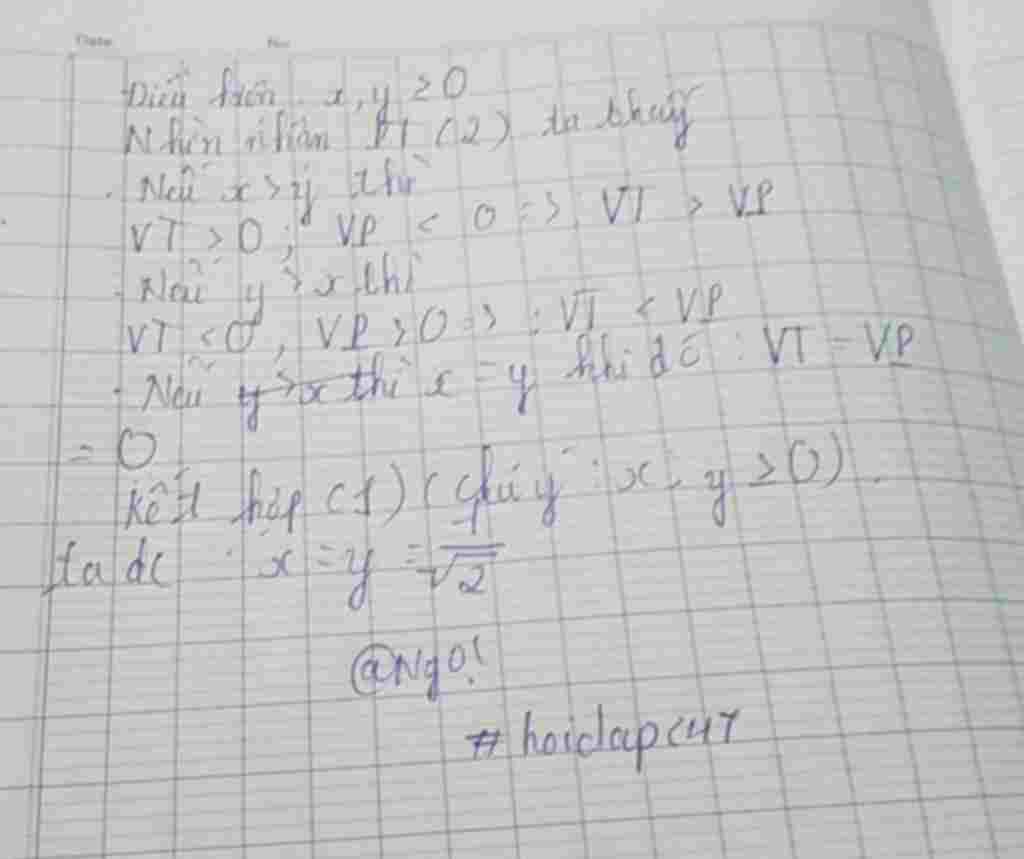 Date No
Điều kiện. x, y ≥ 0
Nhìn nhận PT (2) ta thấy
- Nếu x > y thì
VT > 0 ; VP < 0 => VT > VP
- Nếu y > x thì
VT < 0, VP > 0 => : VT < VP
- Nếu y > x thì x = y khi đó : VT = VP
= 0
Kết hợp (1) (chú ý : x, y ≥ 0).
ta dc x = y = 1/√2
@Ngo!
# hoidap247